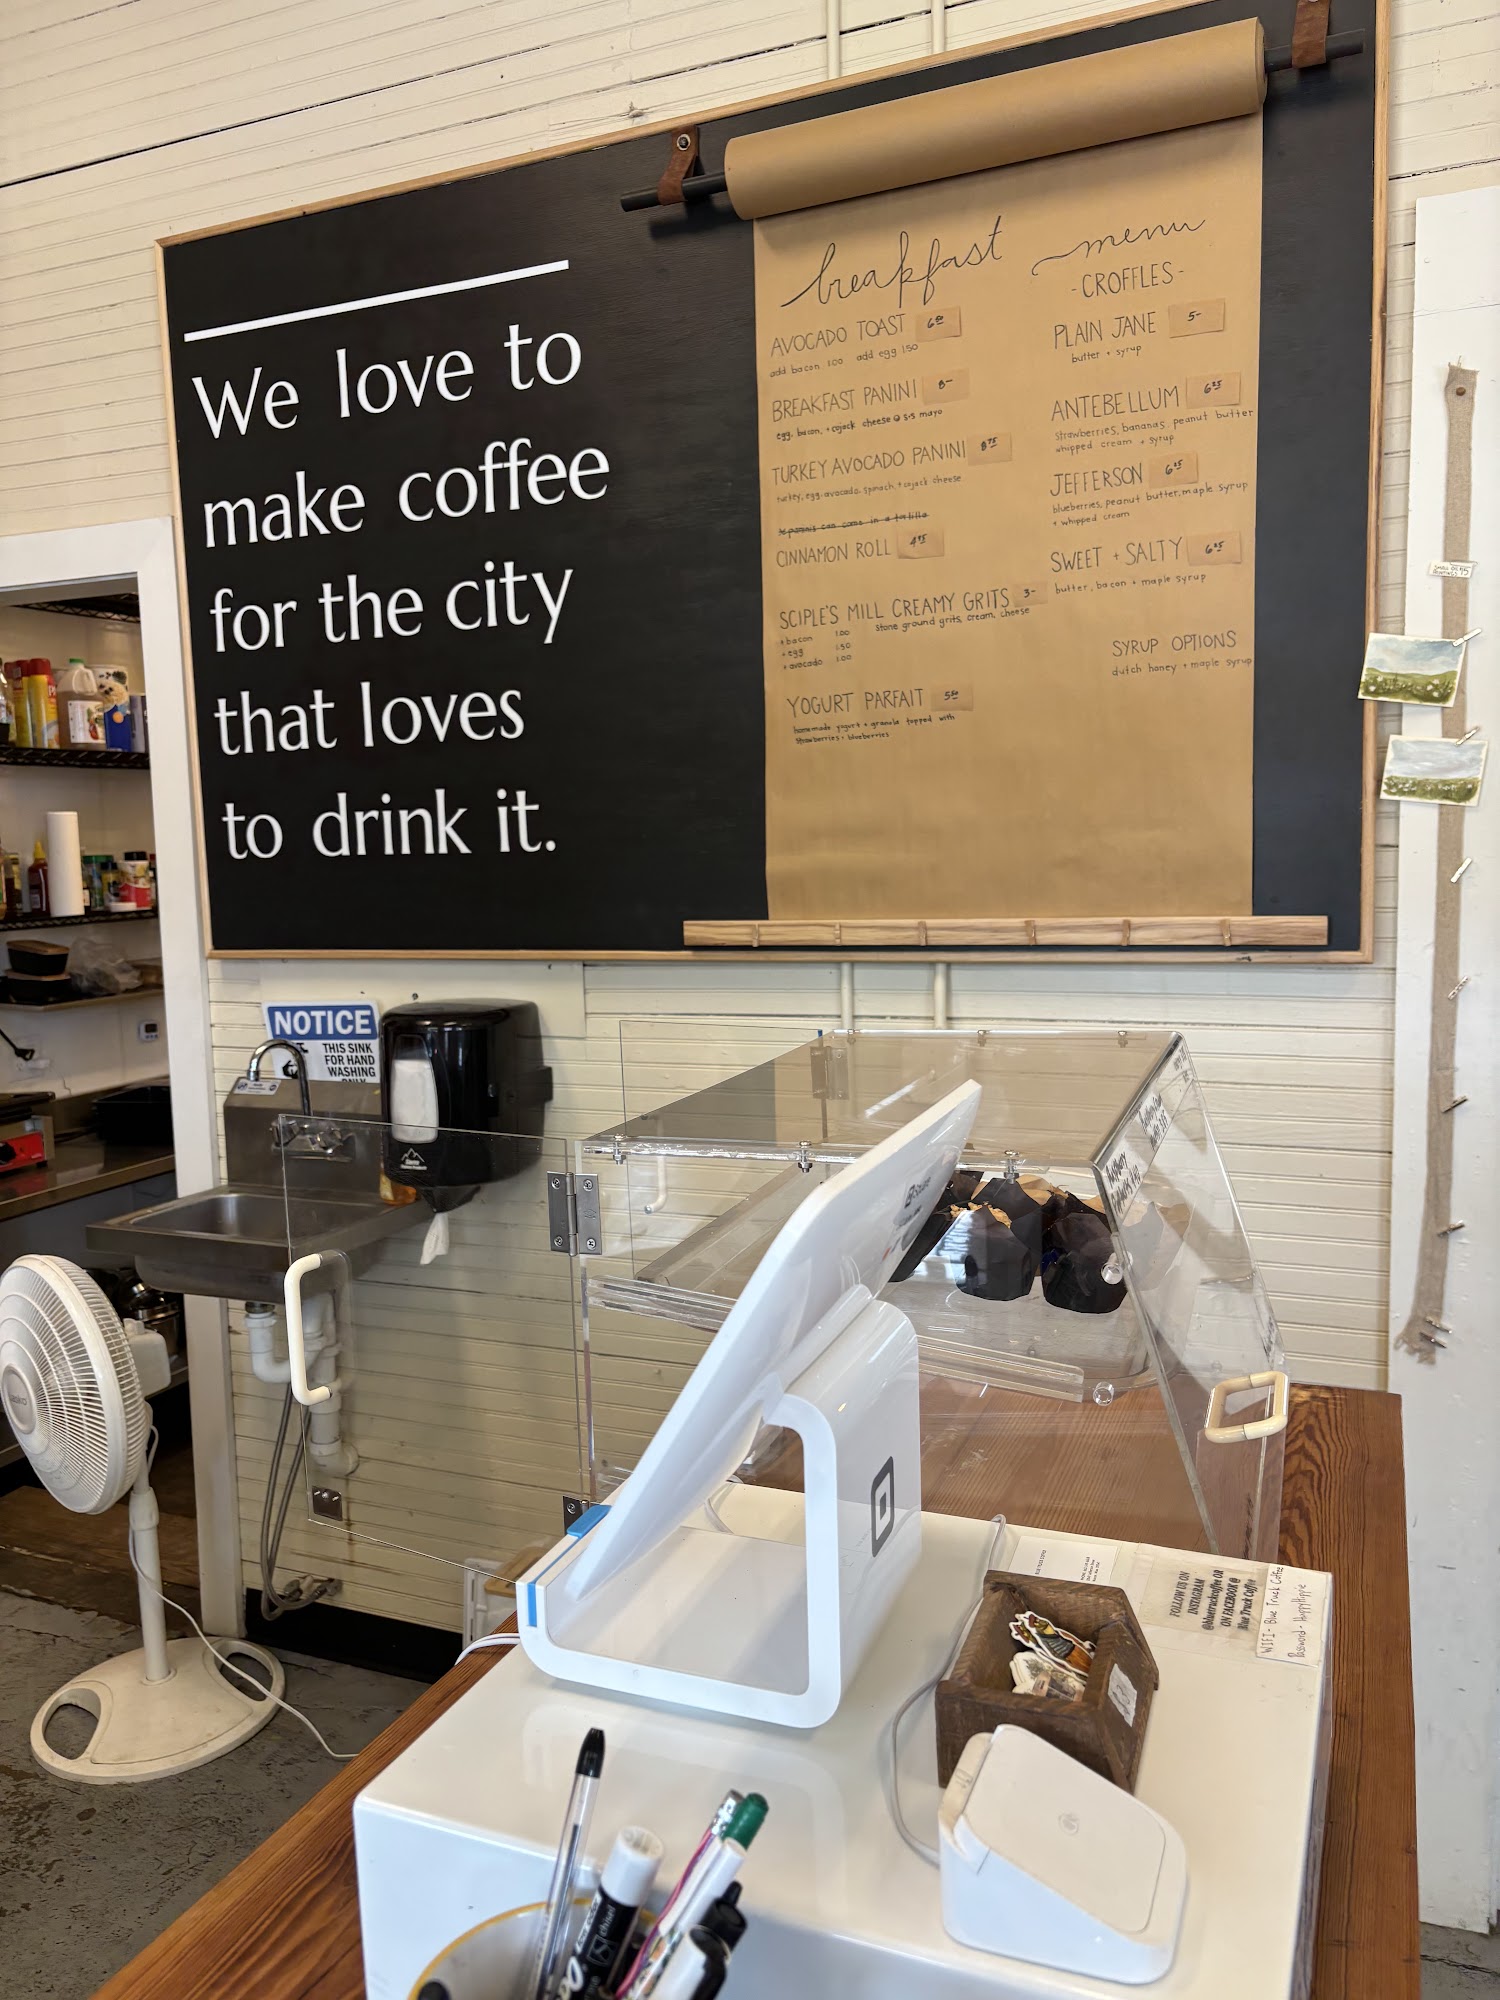 We love to
make coffee
for the city
that loves
to drink it.
breakfast menu
AVOCADO TOAST 6.50
add bacon 1.00 add egg 1.50
BREAKFAST PANINI 8-
egg, bacon, + cojack cheese @ s+s mayo
TURKEY AVOCADO PANINI 8.75
turkey, egg, avocado, spinach + cojack cheese
CINNAMON ROLL 4.25
SCIPLE'S MILL CREAMY GRITS 3-
stone ground grits, cream, cheese
+ bacon 1.00
+ egg 1.50
+ avocado 1.00
YOGURT PARFAIT 5.50
homemade yogurt + granola topped with
strawberries + blueberries
-CROFFLES-
PLAIN JANE 5-
butter + syrup
ANTEBELLUM 6.25
strawberries, bananas, peanut butter
whipped cream + syrup
JEFFERSON 6.25
blueberries, peanut butter, maple syrup
+ whipped cream
SWEET + SALTY 6.25
butter, bacon + maple syrup
SYRUP OPTIONS
dutch honey + maple syrup
NOTICE
THIS SINK
FOR HAND
WASHING
ONLY
Square
FOLLOW US ON
INSTAGRAM
@bluetruckcoffee OR
ON FACEBOOK @
Blue Truck Coffee
WIFI- Blue Truck Coffee
Password- HappyHippie
chisel